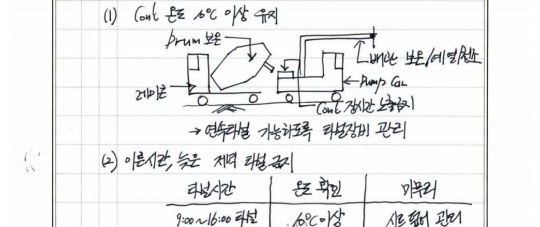 (1) Conc 온도 10℃ 이상 유지
Drum 보온
배관 보온/예열
레미콘
Pump Car
Conc 장시간 노출금지
→ 연속타설 가능하도록 타설장비 관리
(2) 이른시간, 늦은 저녁 타설금지
타설시간 온도 확인 마무리
9:00~16:00 타설 10℃ 이상 시트 덮어 관리